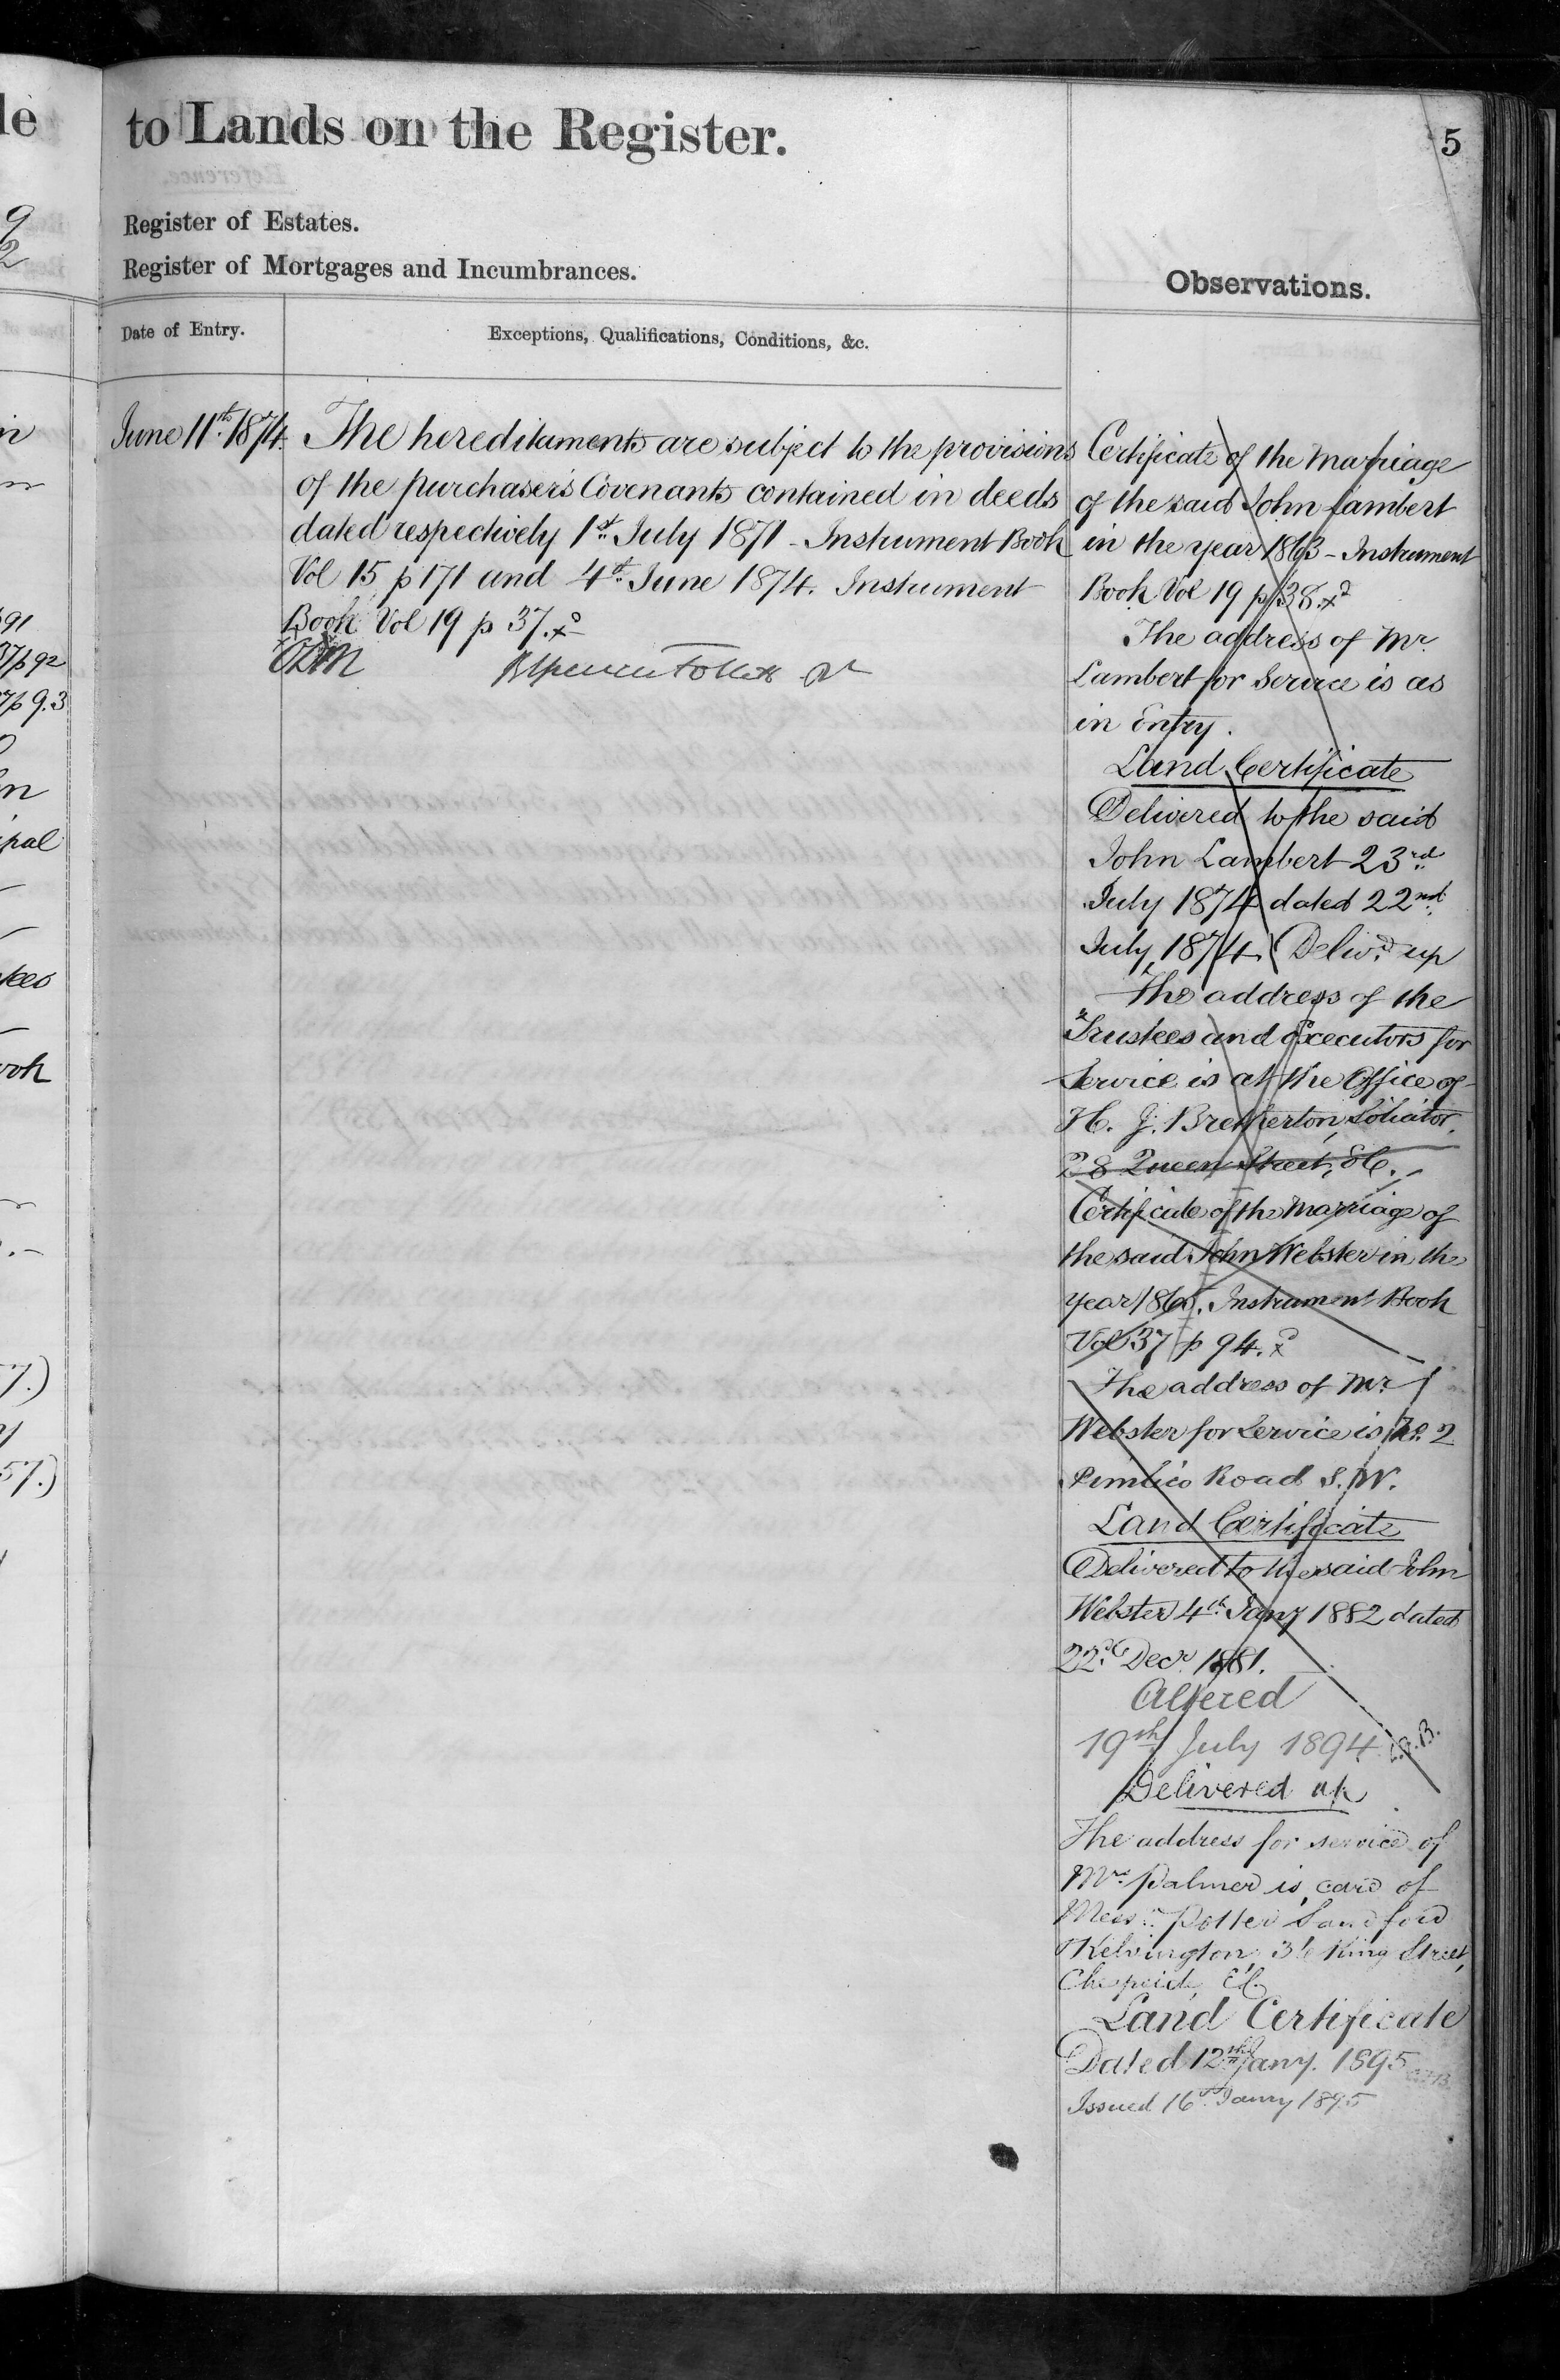 to Lands on the Register.
5
Register of Estates.
Register of Mortgages and Incumbrances.
Observations.
Date of Entry.
Exceptions, Qualifications, Conditions, &c.
June 11th. 1874.
The hereditaments are subject to the provisions
of the purchasers Covenants contained in deeds
dated respectively 1st. July 1871 - Instrument Book
Vol 15 p 171 and 4th. June 1874. Instrument
Book Vol 19 p 37.
Certificate of the Marriage
of the said John Lambert
in the year 1863 - Instrument
Book Vol 19 p 38.
The address of Mr.
Lambert for Service is as
in Entry.
Land Certificate
Delivered to the said
John Lambert 23rd.
July 1874 dated 22nd.
July 1874. Delivd. up
The address of the
Trustees and Executors for
Service is at the Office of
H. J. Bretherton, Solicitor,
28 Queen Street, E C.
Certificate of the Marriage of
the said John Webster in the
year 1865. Instrument Book
Vol 37 p 94.
The address of Mr.
Webster for Service is No. 2
Pimlico Road S.W.
Land Certificate
Delivered to the said John
Webster 4th. Jany 1882 dated
22d. Decr. 1881.
Altered
19th July 1894
Delivered up
The address for service of
Mrs. Palmer is care of
Messrs. Potter Sandford
& Kilvington, 36 King Street,
Cheapside, E C.
Land Certificate
Dated 12th Jany. 1895
Issued 16th. Janry 1895
le
9
2
in
91
37 p 92
37 p 9.3
pal
tees
ook
7.)
57.)